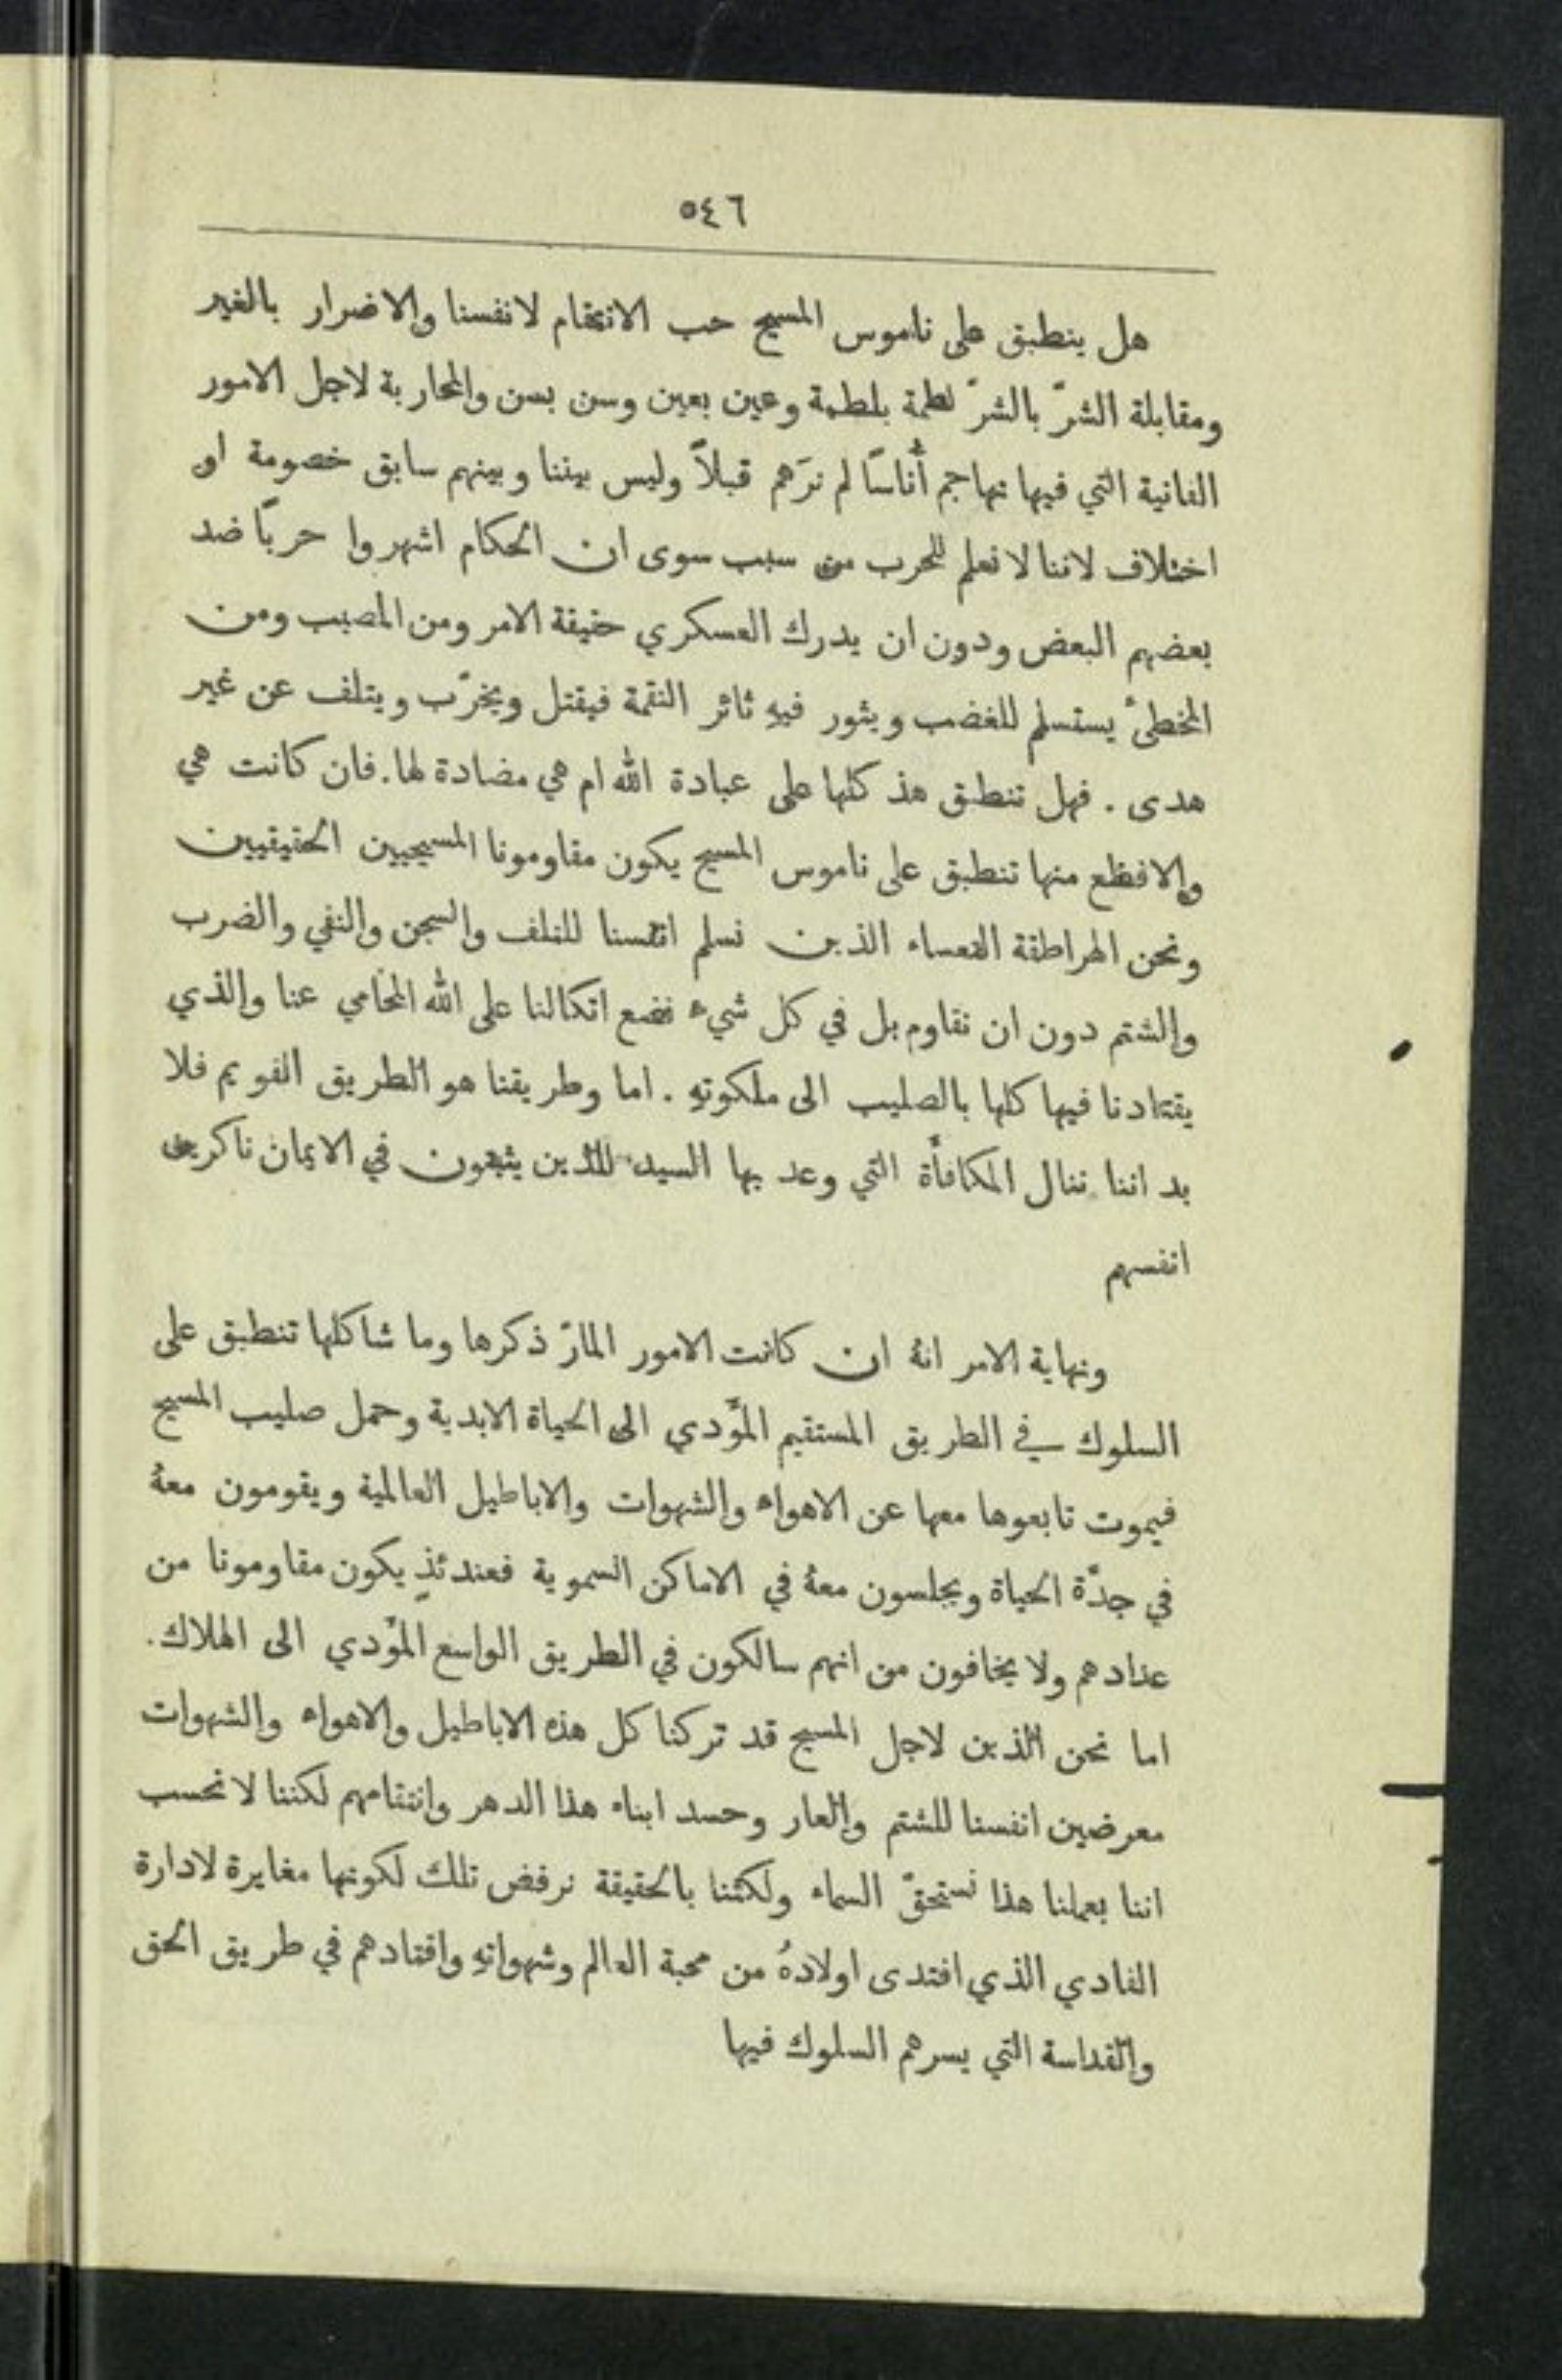 ٥٤٦
هل ينطبق على ناموس المسيح حب الانتقام لانفسنا والاضرار بالغير
ومقابلة الشرّ بالشرّ لطمة بلطمة وعين بعين وسن بسن والمحاربة لاجل الامور
الفانية التي فيها نهاجم أُناسًا لم نرَهم قبلاً وليس بيننا وبينهم سابق خصومة او
اختلاف لاننا لا نعلم للحرب من سبب سوى ان الحكام اشهروا حربًا ضد
بعضهم البعض ودون ان يدرك العسكري حقيقة الامر ومن المصيب ومن
المخطئُ يستسلم للغضب ويثور فيهِ ثائر النقمة فيقتل ويخرّب ويتلف عن غير
هدى . فهل تنطبق هذ كلها على عبادة الله ام هي مضادة لها. فان كانت هي
والافظع منها تنطبق على ناموس المسيح يكون مقاومونا المسيحيين الحقيقيين
ونحن الهراطقة التعساء الذين نسلم انفسنا للتلف والسجن والنفي والضرب
والشتم دون ان نقاوم بل في كل شيء نضع اتكالنا على الله المحامي عنا والذي
يقتادنا فيها كلها بالصليب الى ملكوتهِ . اما وطريقنا هو الطريق القويم فلا
بد اننا ننال المكافأة التي وعد بها السيد للذين يثبتون في الايمان ناكرين
انفسهم
ونهاية الامر انهُ ان كانت الامور المارّ ذكرها وما شاكلها تنطبق على
السلوك في الطريق المستقيم المؤدي الى الحياة الابدية وحمل صليب المسيح
فيموت تابعوها معها عن الاهواء والشهوات والاباطيل العالمية ويقومون معهُ
في جدّة الحياة ويجلسون معهُ في الاماكن السموية فعندئذٍ يكون مقاومونا من
عدادهم ولا يخافون من انهم سالكون في الطريق الواسع المؤدي الى الهلاك.
اما نحن الذين لاجل المسيح قد تركنا كل هذه الاباطيل والاهواء والشهوات
معرضين انفسنا للشتم والعار وحسد ابناء هذا الدهر وانتقامهم لكننا لا نحسب
اننا بعملنا هذا نستحقّ السماء ولكننا بالحقيقة نرفض تلك لكونها مغايرة لادارة
الفادي الذي افتدى اولادهُ من محبة العالم وشهواتهِ واقتادهم في طريق الحق
والقداسة التي يسرهم السلوك فيها